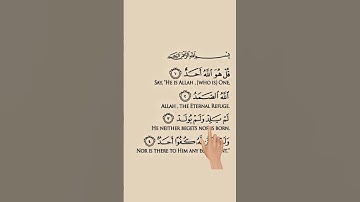 بسم الله الرحمن الرحيم
قُلْ هُوَ اللَّهُ أَحَدٌ ١
SAY, "HE IS ALLAH , [WHO IS] ONE,
اللَّهُ الصَّمَدُ ٢
ALLAH , THE ETERNAL REFUGE.
لَمْ يَلِدْ وَلَمْ يُولَدْ ٣
HE NEITHER BEGETS NOR IS BORN,
وَلَمْ لَّهُ كُفُوًا أَحَدٌ ٤
NOR IS THERE TO HIM ANY